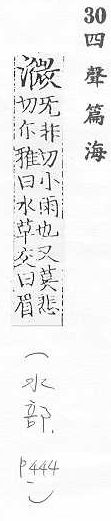 30 四聲篇海
溦
无非切小雨也又莫悲
切尒雅曰水草交曰眉
（水部. P444）